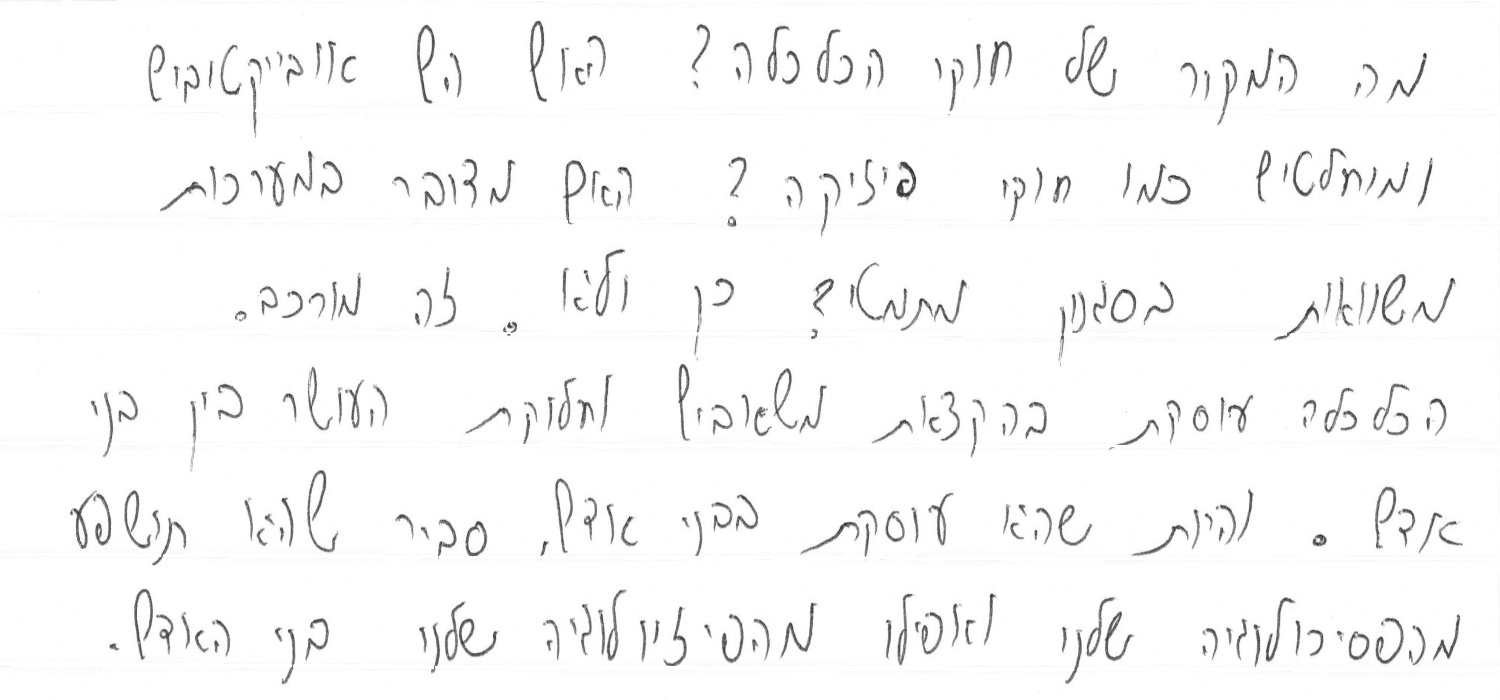 מה המקור של חוקי הכלכלה? האם הם אובייקטובים
ומוחלטים כמו חוקי פיזיקה? האם מדובר במערכות
משוואות בסגנון מתמטי? כן ולא. זה מורכב.
הכלכלה עוסקת בהקצאת משאבים וחלוקת העושר בין בני
אדם. והיות שהיא עוסקת בבני אדם, סביר שהיא תושפע
מהפסיכולוגיה שלנו ואפילו מהפיזיולוגיה שלנו בני האדם.